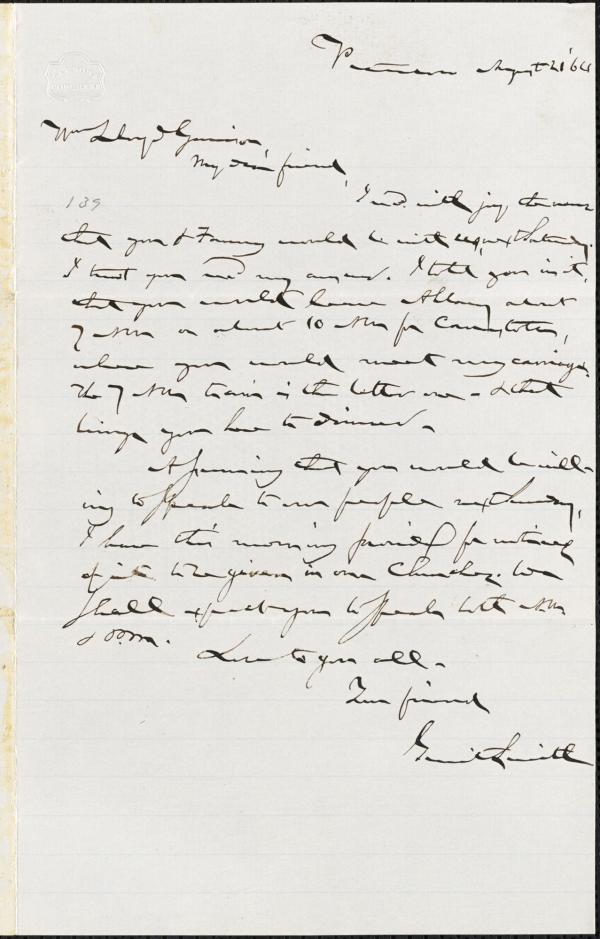 Peterboro August 21 '64
Wm Lloyd Garrison,
My dear friend,
139
I read with joy the news
that you & Fanny would be with us next Saturday.
I trust you recd my answer. I told you in it,
that you would leave Albany about
7 AM or about 10 AM for Canastota,
where you would meet my carriage.
The 7 AM train is the better one - & that
brings you here to dinner.
Assuming that you would be will-
ing to speak to our people next Sunday,
I have this morning for notices
of it to be given in our Churches. We
shall expect you to speak both AM
& PM.
Love to you all.
Your friend
Gerrit Smith